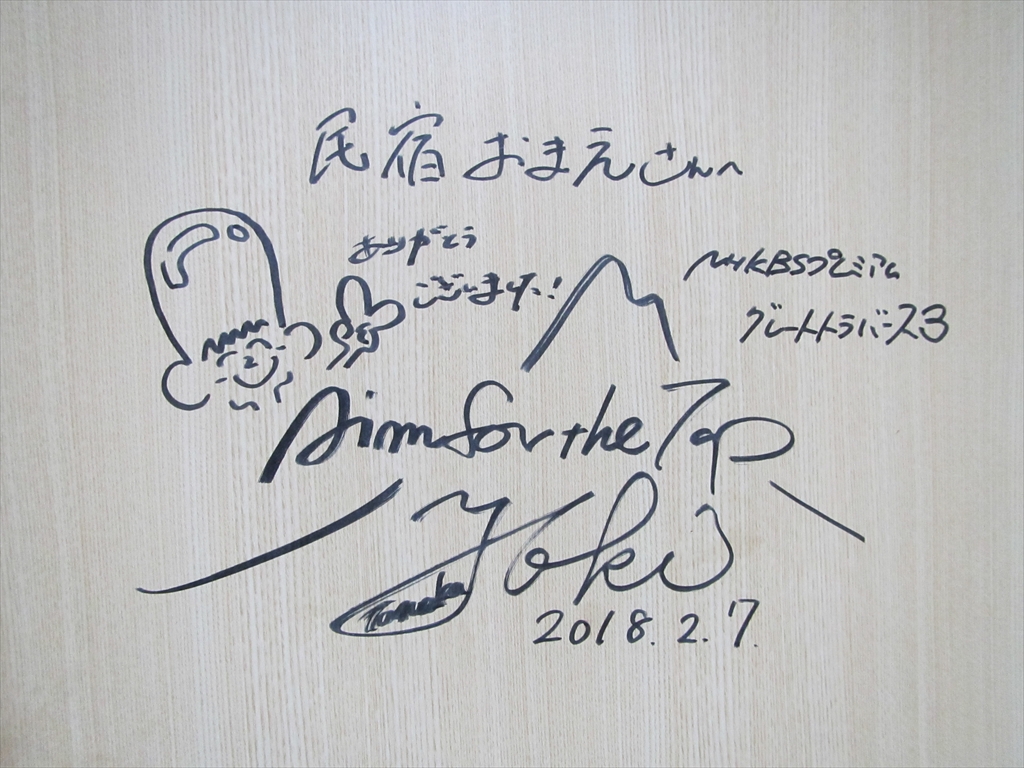 民宿おまえさんへ
ありがとう
ございました!
NHKBSプレミアム
グレートトラバース3
Aim for the Top
Yoki
Tanaka
2018.2.7.